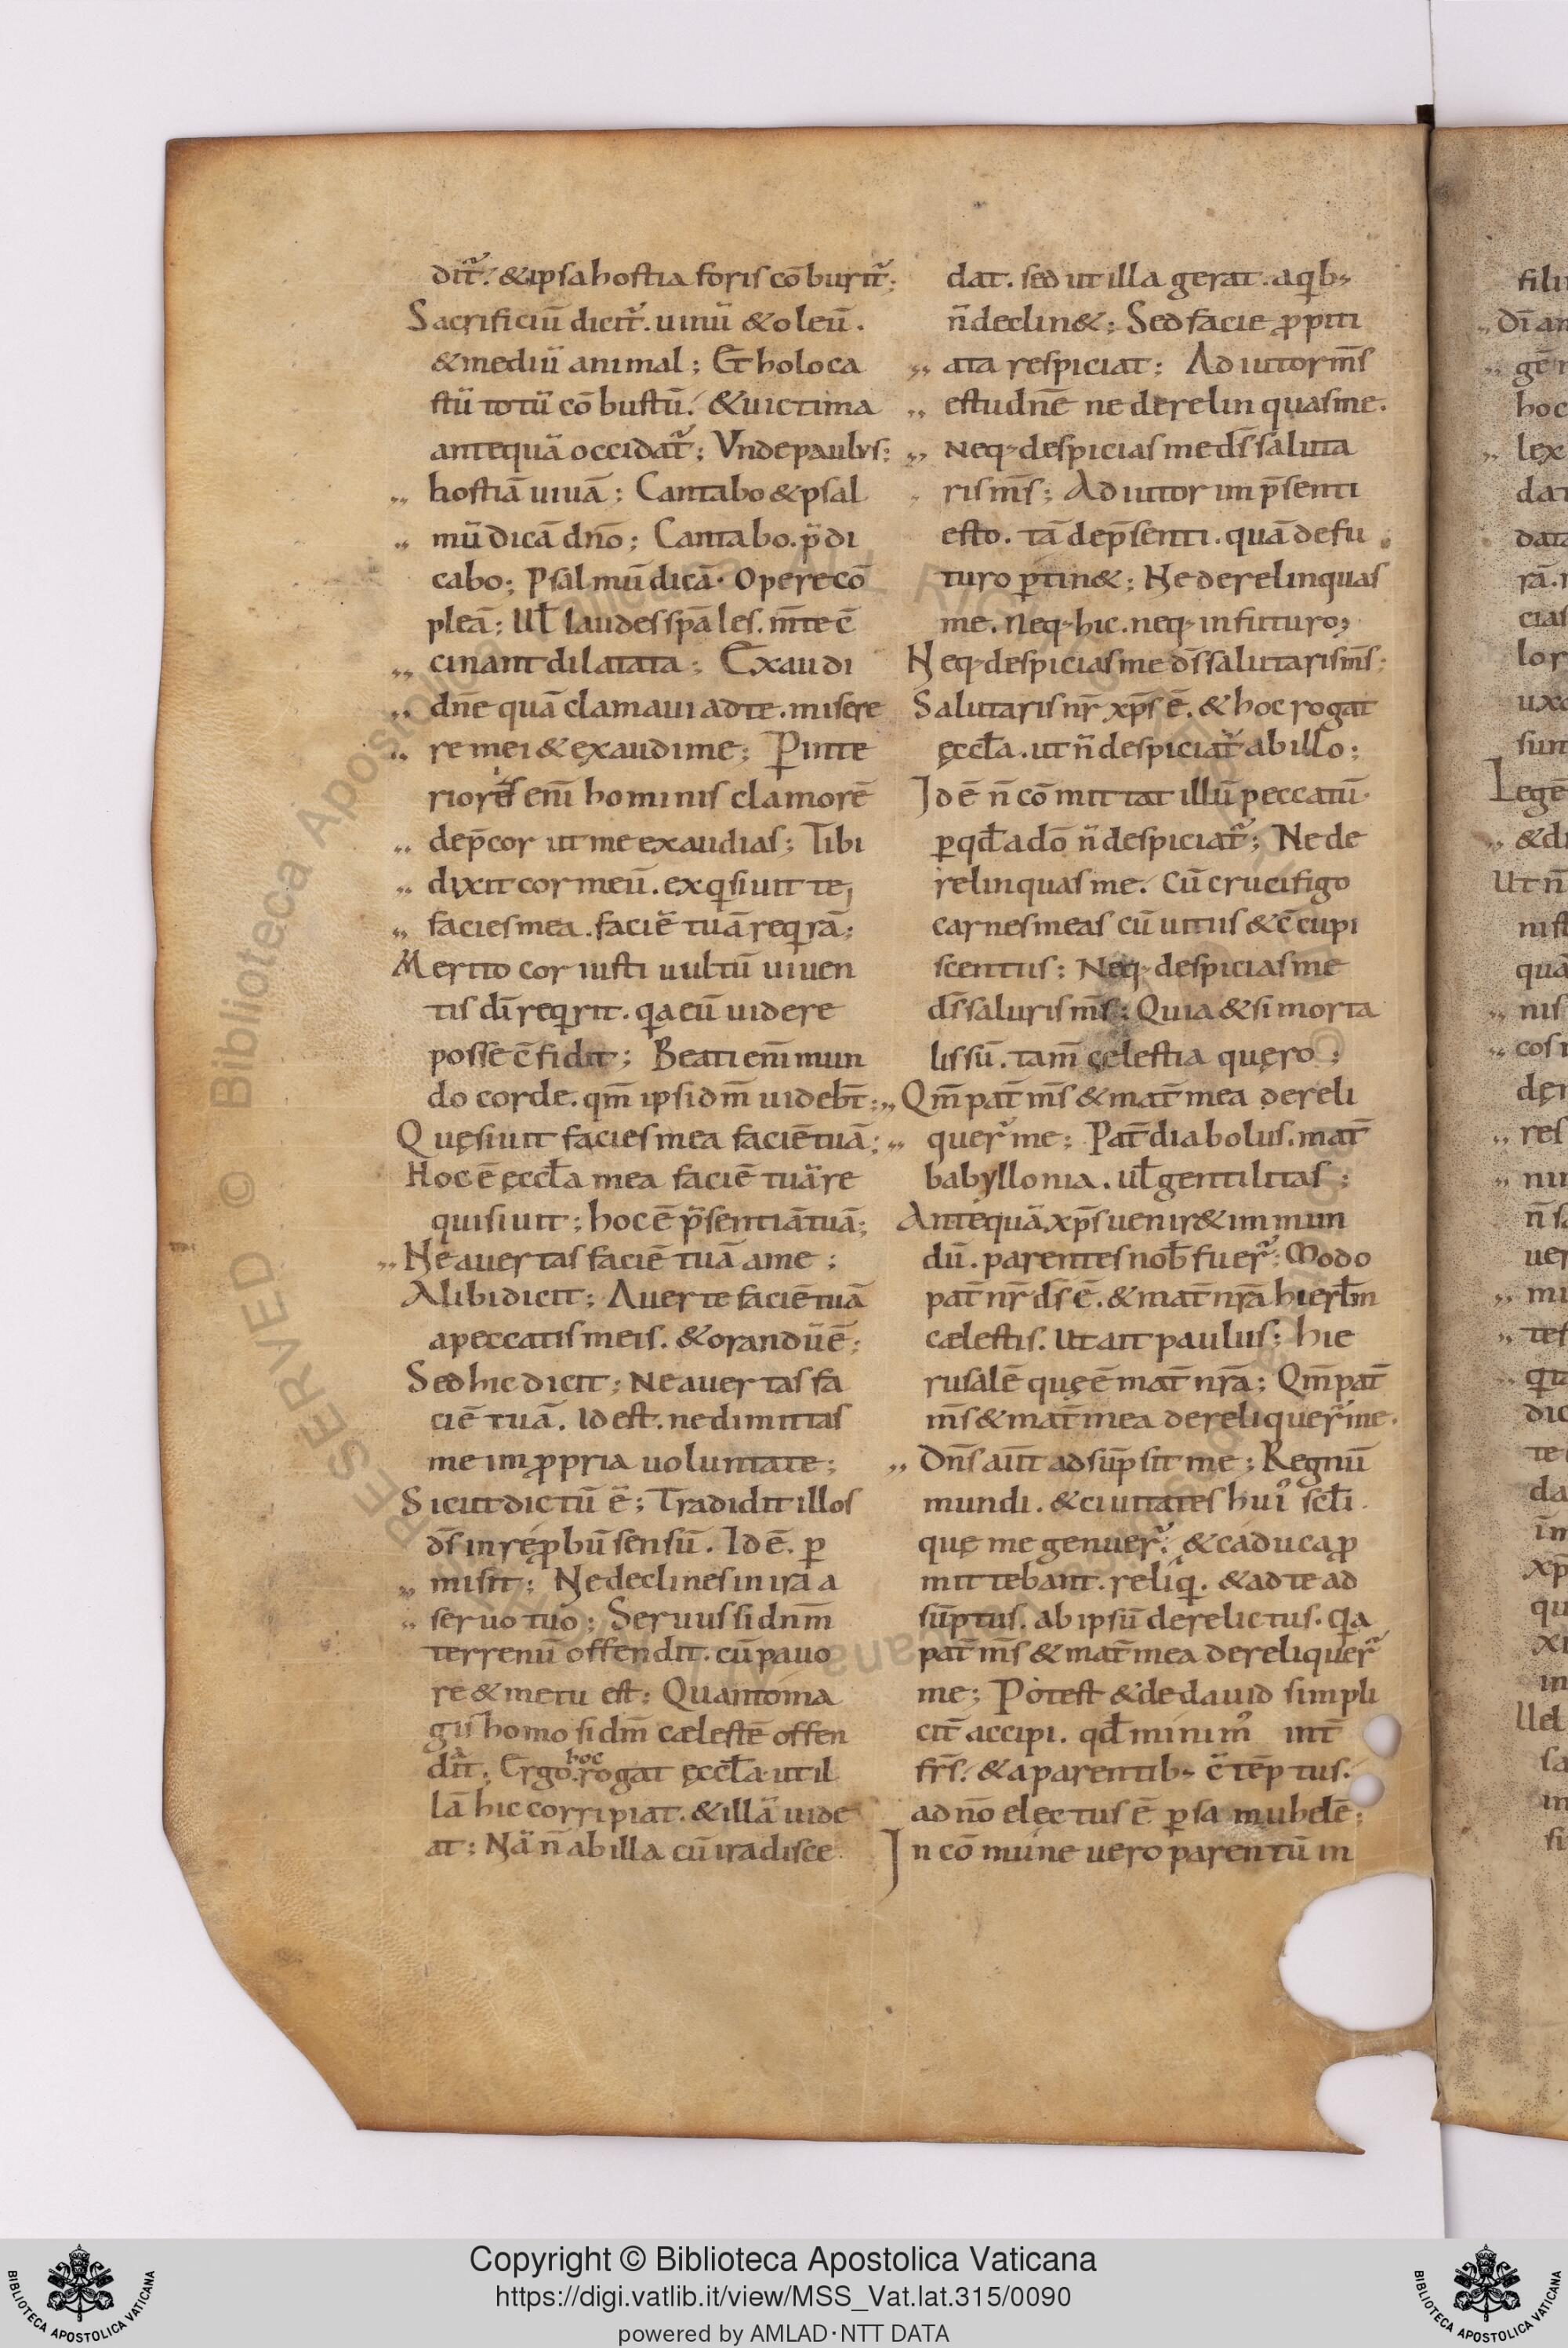 dit᷑. & ipsa hostia foris cōburit᷑;
Sacrificiū dicit᷑. uinū & oleū.
& mediū animal; Et holoca
stū totū cōbustū. & uictima
antequā occidat᷑; Vnde paulus:
hostiā uiuā; Cantabo & psal
mū dicā dn̄o; Cantabo. p̄di
cabo; Psalmū dicā. Opere cō
pleā; Ul̄ laudes sp̄ales. m̄te c̄
cinant dilatata; Exaudi
dn̄e quā clamaui ad te. misere
re mei & exaudi me; P̱ inte
rioris enī hominis clamorē
dep̄cor ut me exaudias; Tibi
dixit cor meū. exqsiuit te
facies mea. faciē tuā reqrā;
Merito cor iusti uultū uiuen
tis dī reqrit. qa eū uidere
posse c̄fidit; Beati enī mun
do corde. qm̄ ipsi dm̄ uideb̄t;
Quęsiuit facies mea faciē tuā;
Hoc ē ęccl̄a mea faciē tuā re
quisiuit; hoc ē p̄sentiā tuā;
Ne auertas faciē tuā a me;
Alibi dicit; Auerte faciē tuā
a peccatis meis. & orandū ē;
Sed hic dicit; Ne auertas fa
ciē tuā. Id est. ne dimittas
me in ꝓpria uoluntate;
Sicut dictū ē; Tradidit illos
ds̄ in reꝓbū sensū. Id ē. ꝑ
misit; Ne declines in ira a
seruo tuo; Seruus si dnm̄
terrenū offendit. cū pauo
re & metu est; Quanto ma
gis homo si dm̄ cælestē offen
dit; Ergo hoc rogat ęccl̄a ut il
lā hic corripiat. & illā uide
at; Nā n̄ ab illa cū ira disce
dat. sed ut illa gerat. a qib;
n̄ declin&; Sed facie ꝓpiti
ata respiciat; Adiutor m̄s
estu dn̄e ne derelinquas me.
Neq; despicias me ds̄ saluta
ris m̄s; Adiutor im p̄senti
esto. tā de p̄senti. quā de fu
turo ꝑtin&; Ne derelinquas
me. Neq; hic. neq; in futuro;
Neq; despicias me ds̄ salutaris m̄s;
Salutaris nr̄ xp̄s ē. & hoc rogat
ęccl̄a. ut n̄ despiciat᷑ ab illo;
Id ē n̄ cōmittat illū peccatū
ꝑ qd̄ a dō n̄ despiciat᷑; Ne de
relinquas me. Cū crucifigo
carnes meas cū uitiis & c̄cupi
scentiis; Neq; despicias me
ds̄ saluris m̄s; Quia & si morta
lis sū. tam̄ cęlestia quęro;
Qm̄ pat̄ m̄s & mat̄ mea dereli
quer᷑ me; Pat̄ diabolus. mat̄
babyllonia. ul̄ gentilitas;
Antequā xp̄s uenir& im mun
dū. parentes nob̄ fuer᷑; Modo
pat̄ nr̄ ds̄ ē. & mat̄ nr̄a hierl̄m
cælestis. Ut ait paulus; hie
rusalē quę ē mat̄ nr̄a; Qm̄ pat̄
m̄s & mat̄ mea derelique᷑r me.
Dn̄s aūt adsūpsit me; Regnū
mundi. & ciuitates hui᷒ scl̄i
quę me genuer᷑. & caduca ꝓ
mittebant. reliq. & ad te ad
sūptus. ab ipsū derelictus. qa
pat̄ m̄s & mat̄ mea dereliquer᷑
me; Potest & de dauid simpli
cit̄ accipi. qd̄ minim᷒ int̄
fr̄s. & a parentib; c̄tēptus.
a dn̄o electus ē ꝑ samuhelē;
In cōmune uero parentū in
Copyright © Biblioteca Apostolica Vaticana
https://digi.vatlib.it/view/MSS_Vat.lat.315/0090
powered by AMLAD·NTT DATA